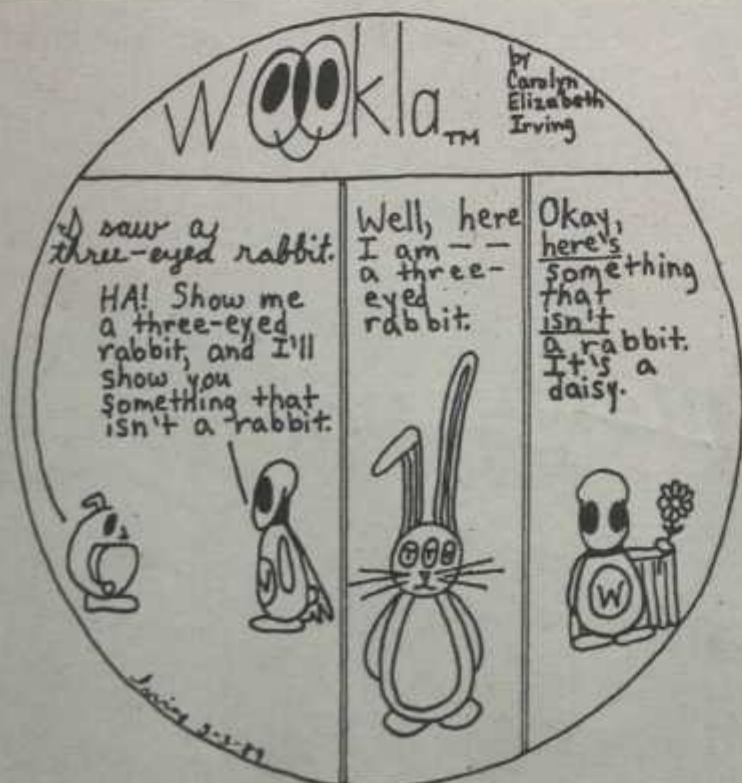 Wookla™
by
Carolyn
Elizabeth
Irving
I saw a
three-eyed rabbit.
HA! Show me
a three-eyed
rabbit, and I'll
show you
something that
isn't a rabbit.
Well, here
I am — —
a three-
eyed
rabbit.
Okay,
here's
something
that
isn't
a rabbit.
It's a
daisy.
W
Irving